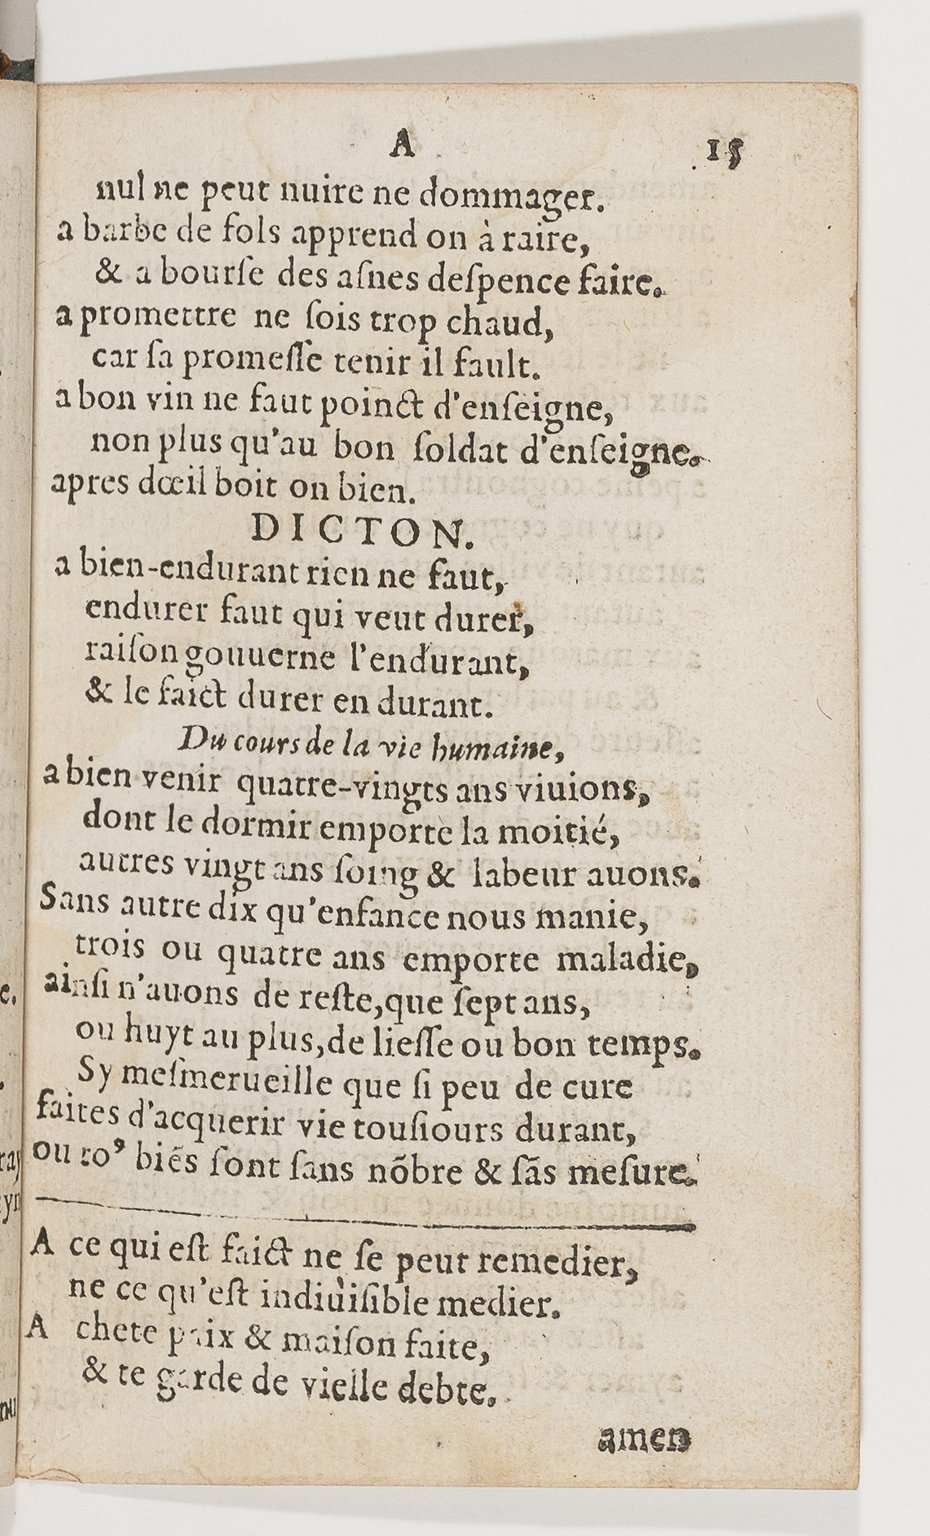 A 15
nul ne peut nuire ne dommager.
a barbe de fols apprend on à raire,
& a bourſe des aſnes deſpence faire.
a promettre ne ſois trop chaud,
car ſa promeſſe tenir il fault.
a bon vin ne faut poinct d'enſeigne,
non plus qu'au bon ſoldat d'enſeigne.
apres dœil boit on bien.
DICTON.
a bien-endurant rien ne faut,
endurer faut qui veut durer,
raiſon gouuerne l'endurant,
& le faict durer en durant.
Du cours de la vie humaine,
a bien venir quatre-vingts ans viuions,
dont le dormir emporte la moitié,
autres vingt ans ſoing & labeur auons.
Sans autre dix qu'enfance nous manie,
trois ou quatre ans emporte maladie,
ainſi n'auons de reſte, que ſept ans,
ou huyt au plus, de lieſſe ou bon temps.
Sy meſmerueille que ſi peu de cure
faites d'acquerir vie touſiours durant,
ou toꝰ biẽs ſont ſans nõbre & ſãs meſure.
A ce qui eſt faict ne ſe peut remedier,
ne ce qu'eſt indiuiſible medier.
A chete paix & maiſon faite,
& te garde de vielle debte.
amen